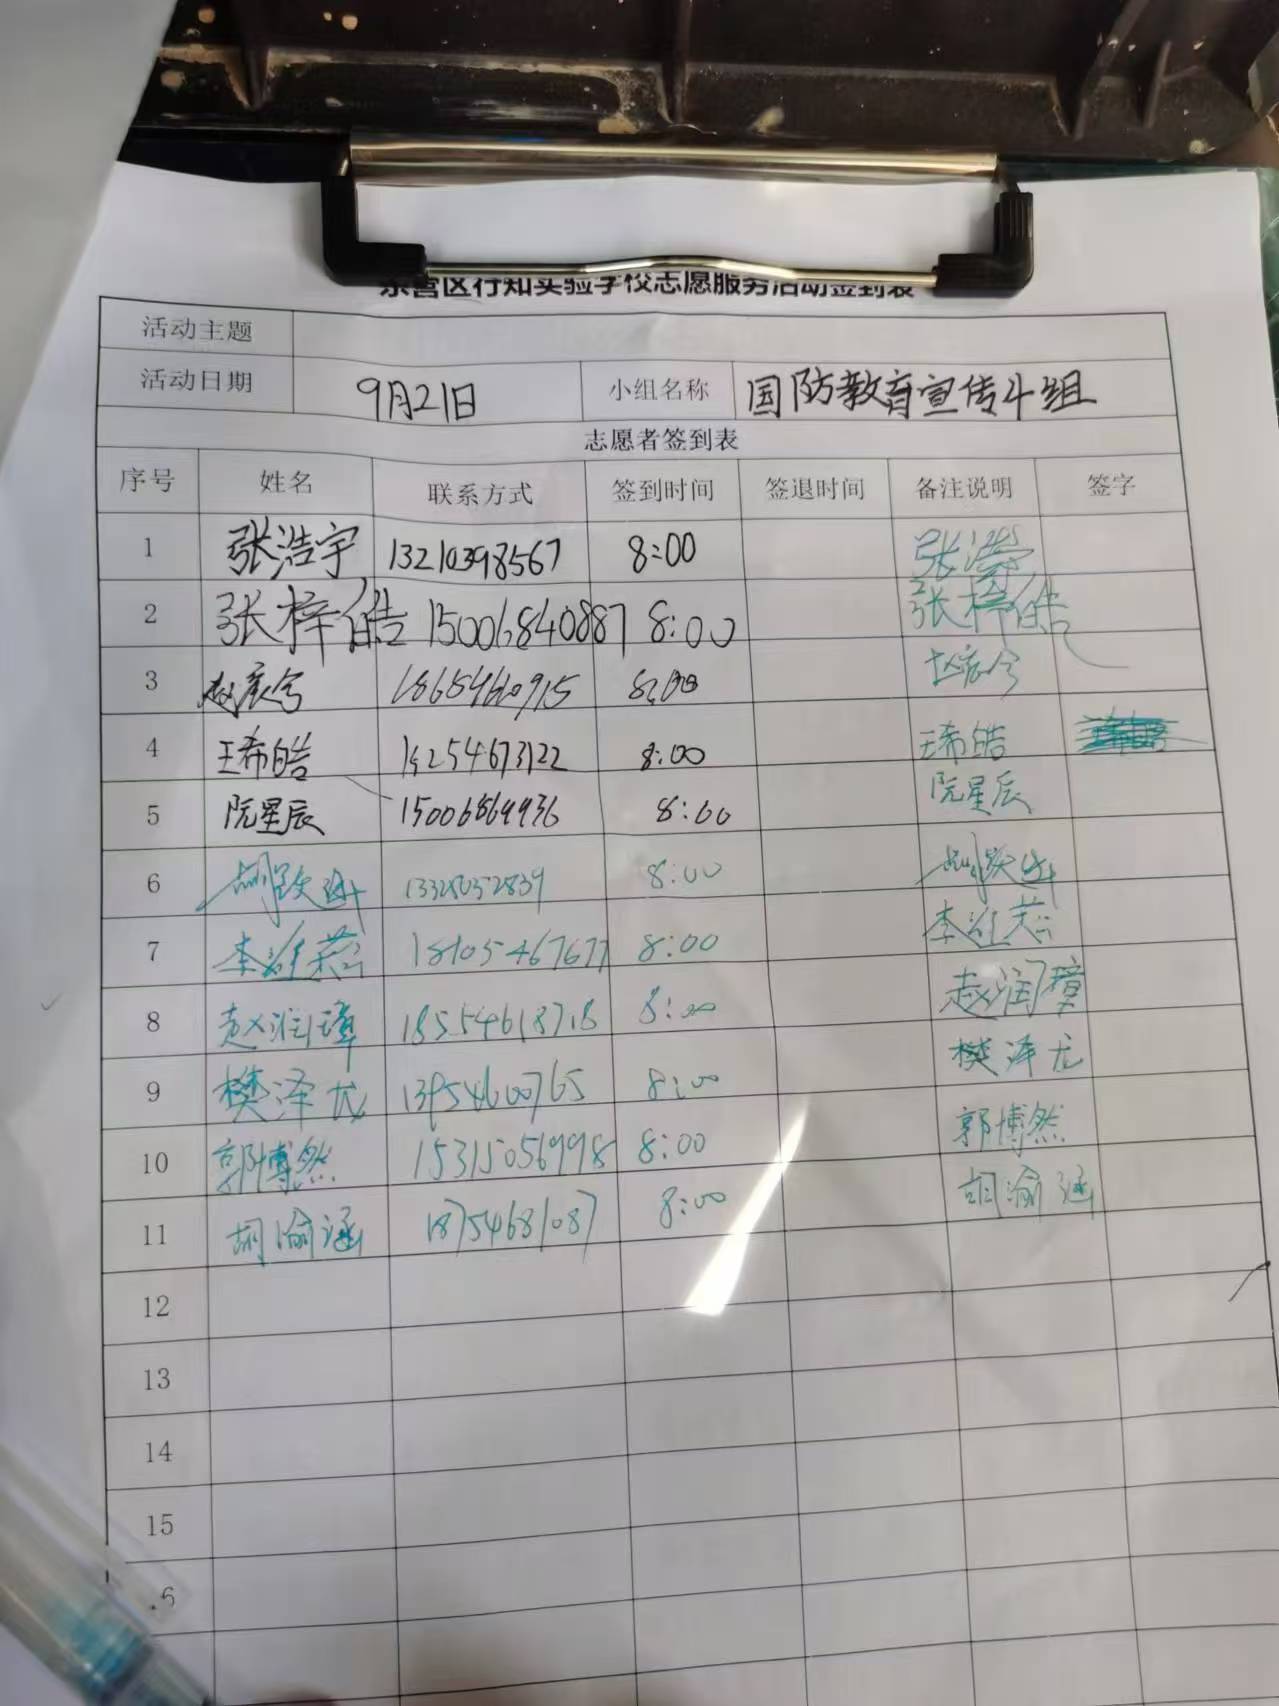 东营区行知实验学校志愿服务活动签到表
活动主题
活动日期 9月21日 小组名称 国防教育宣传小组
志愿者签到表
序号 姓名 联系方式 签到时间 签退时间 备注说明 签字
1 张浩宇 13210398567 8:00 张浩宇
2 张梓皓 15006840887 8:00 张梓皓
3 8:00
4 王希皓 15254673122 8:00 王希皓
5 阮星辰 15006869936 8:00 阮星辰
6 8:00
7 18105467677 8:00
8 赵润璋 18554618718 8:00 赵润璋
9 樊泽龙 13954600765 8:00 樊泽龙
10 郭博然 15315056998 8:00 郭博然
11 胡渝涵 18754681087 8:00 胡渝涵
12
13
14
15